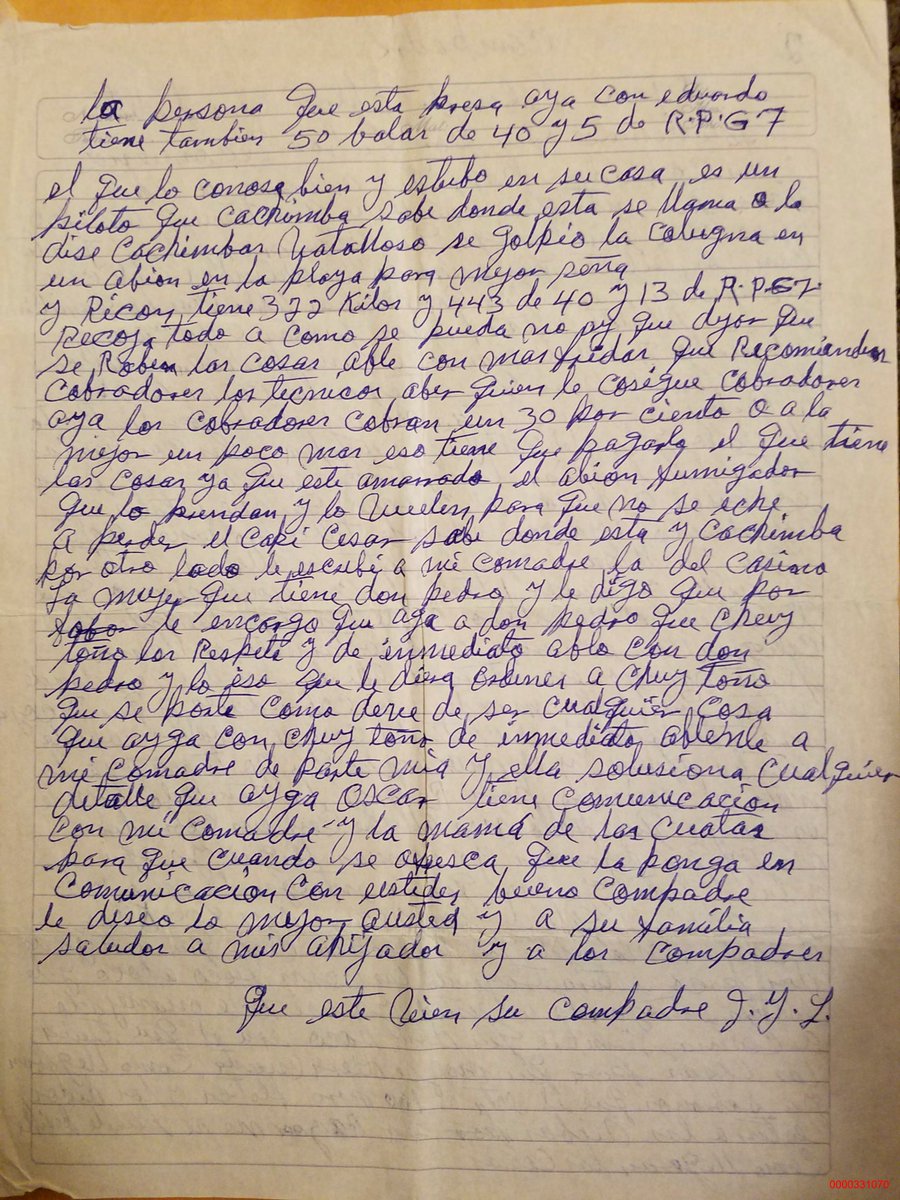 la persona que esta presa aya con eduardo
tiene tambien 50 balas de 40 y 5 de R.P.G 7
el que lo conose bien y estubo en su casa es un
piloto que cachimba sabe donde esta se llama o le
dise Cachimbas Vatalloso se golpio la colugna en
un abion en la playa para mejor seña
y Ricon tiene 322 Kilos y 443 de 40 y 13 de R.P.G7.
Recoja todo a como se pueda no que que
se Roben las cosas able con mas fridas que Recomienden
cobradores los tecnicos aber quien le cosigue cobradores
aya los cobradores cobran un 30 por ciento o a la
mejor un poco mas eso tiene que pagarlo el que tiene
las cosas ya que este amarrado el abion fumigador
que lo prendan y lo vuelen para que no se eche
A perder el capi Cesar sabe donde esta y Cachimba
por otro lado le escribi a mi comadre la del Casino
La mujer que tiene don pedro y le digo que por
le encargo que aga a don pedro que Chuy
toño los Respete y de inmediato ablo con don
pedro y lo iso que le diera ordenes a Chuy toño
que se porte como deve de ser cualquier cosa
que ayga con chuy toño de inmediato ablenle a
mi comadre de parte mia y ella solusiona cualquier
detalle que ayga Oscar tiene comunicación
con mi comadre y la mamá de las cuatas
para que cuando se ofresca que la ponga en
Comunicación con ustedes bueno compadre
le deseo lo mejor austed y a su família
saludos a mis ahijados y a los compadres
Que este vien su compadre J. G. L.
0000331070